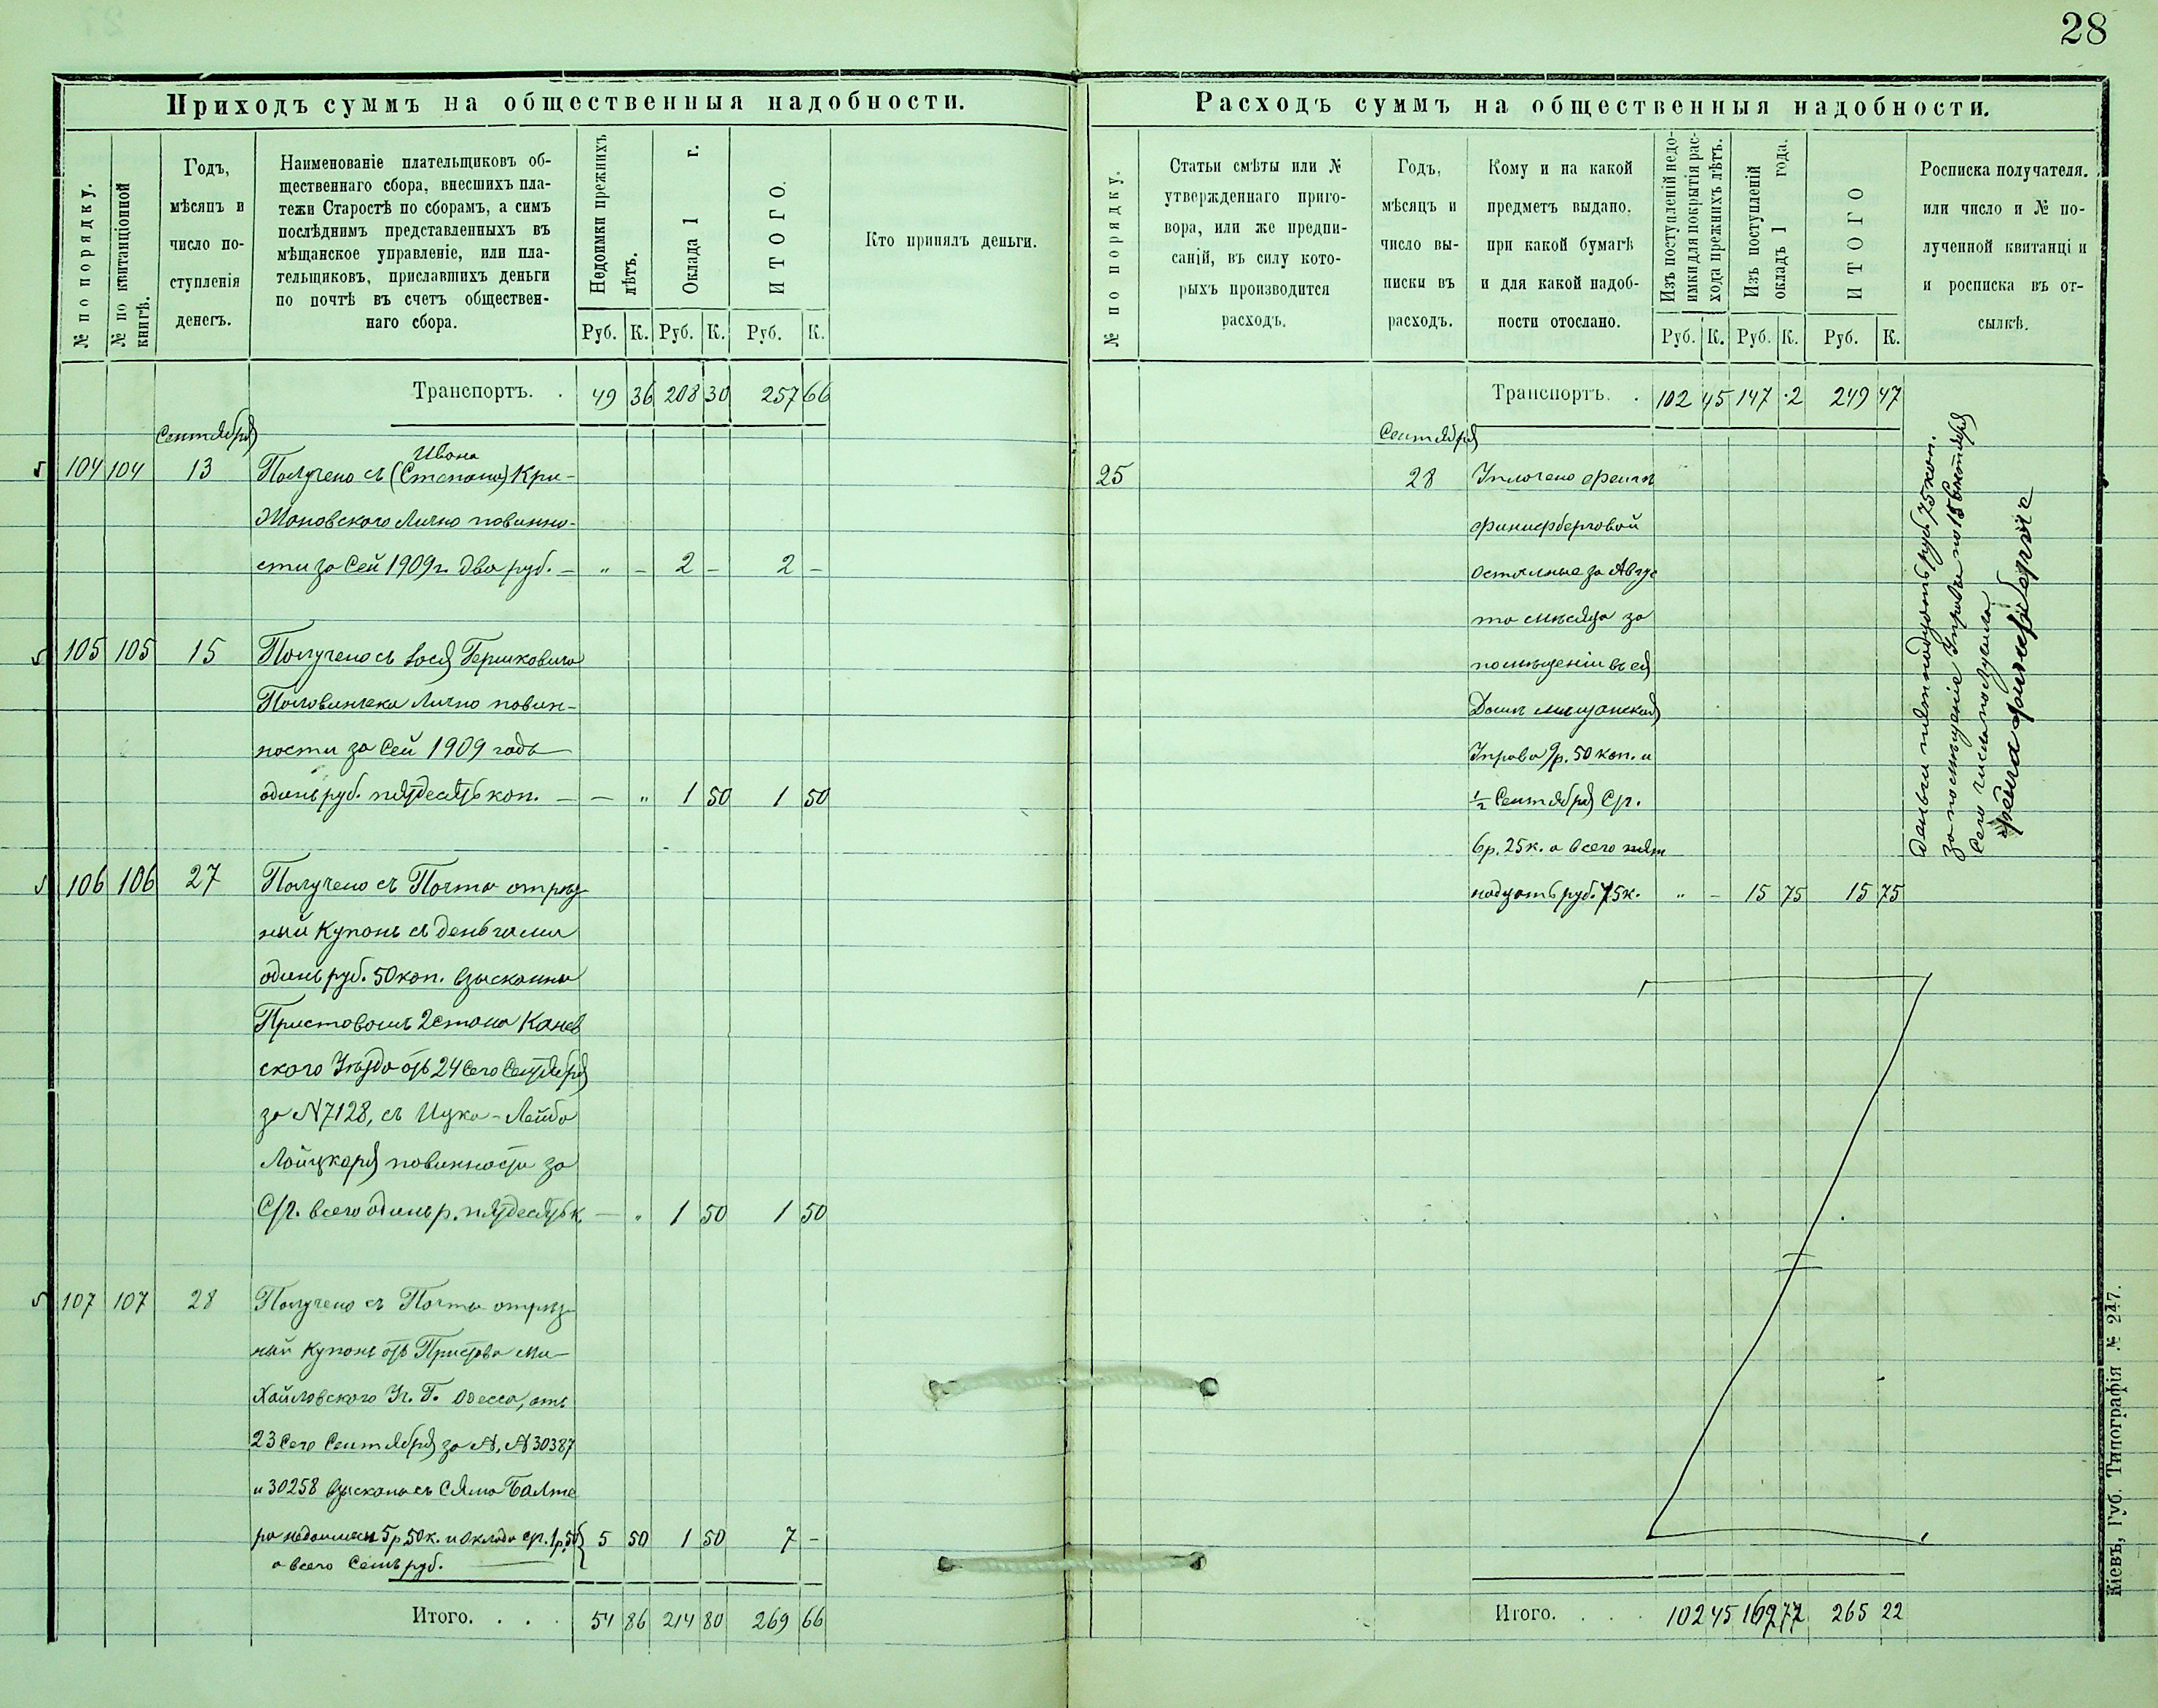 28
Приходъ суммъ на общественныя надобности.
№ по порядку.
№ по квитанціонной книгѣ.
Годъ,
мѣсяцъ и
число по-
ступленія
денегъ.
Наименованіе плательщиковъ об-
щественнаго сбора, внесшихъ пла-
тежи Старостѣ по сборамъ, а симъ
послѣднимъ представленныхъ въ
мѣщанское управленіе, или пла-
тельщиковъ, приславшихъ деньги
по почтѣ въ счетъ обществен-
наго сбора.
Недоимки прежнихъ
лѣтъ.
Оклада 1 г.
ИТОГО.
Кто принялъ деньги.
Руб. К. Руб. К. Руб. К.
Транспортъ. . 49 36 208 30 257 66
Сентября
Ивана
104 104 13 Получено съ (Степана) Кри-
жановского Лично повинно-
сти за Сей 1909 г. два руб. — „ – 2 – 2 –
105 105 15 Получено съ Іося Гершковича
Половинчека Лично повин-
ности за Сей 1909 годъ
одинъ руб. пятдесятъ коп. — — „ 1 50 1 50
106 106 27 Получено съ Почта отрѣз-
ный Купонъ съ деньгами
одинъ руб. 50 коп. взыскан
Приставомъ 2 стана Канев
ского Уѣзда отъ 24 Сего Сентября
за № 7128, съ Ицка-Лейба
повинности за
С/г. всего одинъ р. пятдесятъ к. — „ 1 50 1 50
107 107 28 Получено съ Почта отрѣз-
ный Купонъ отъ Пристава Ми-
хайловского Уч. Г. Одесса, отъ
23 Сего Сентября за №, № 30387
и 30258 взыскана съ
недоимки 5 р 50 к. и оклада с/г. 1 р. 50 5 50 1 50 7 –
а всего Семъ руб.
Итого. . . . 54 86 214 80 269 66
Расходъ суммъ на общественныя надобности.
№ по порядку.
Статьи смѣты или №
утвержденнаго приго-
вора, или же предпи-
саній, въ силу кото-
рыхъ производится
расходъ.
Годъ,
мѣсяцъ и
число вы-
писки въ
расходъ.
Кому и на какой
предметъ выдано,
при какой бумагѣ
и для какой надоб-
ности отослано.
Изъ поступленій недо-
имки для покрытія рас-
хода прежнихъ лѣтъ.
Изъ поступленій
окладъ 1 года.
ИТОГО
Росписка получателя.
или число и № по-
лученной квитанціи
и росписка въ от-
сылкѣ.
Руб. К. Руб. К. Руб. К.
Транспортъ. . 102 45 147 2 249 47
Сентября
25 28 Уплочено
Остальные за Авгус
та мѣсяца за
помѣщеніи въ ея
Домѣ мѣщанской
Управа 9 р. 50 коп. и
½ Сентября С/г.
6 р. 25 к. а всего пят
надцать руб. 75 к. „ – 15 75 15 75
Деньги пятнадцать руб 75 коп.
за помѣщеніе Управы по 15 Сентября
Сего числа получила
Итого. . . . 102 45 162 77 265 22
Кіевъ, Губ. Типографія № 247.